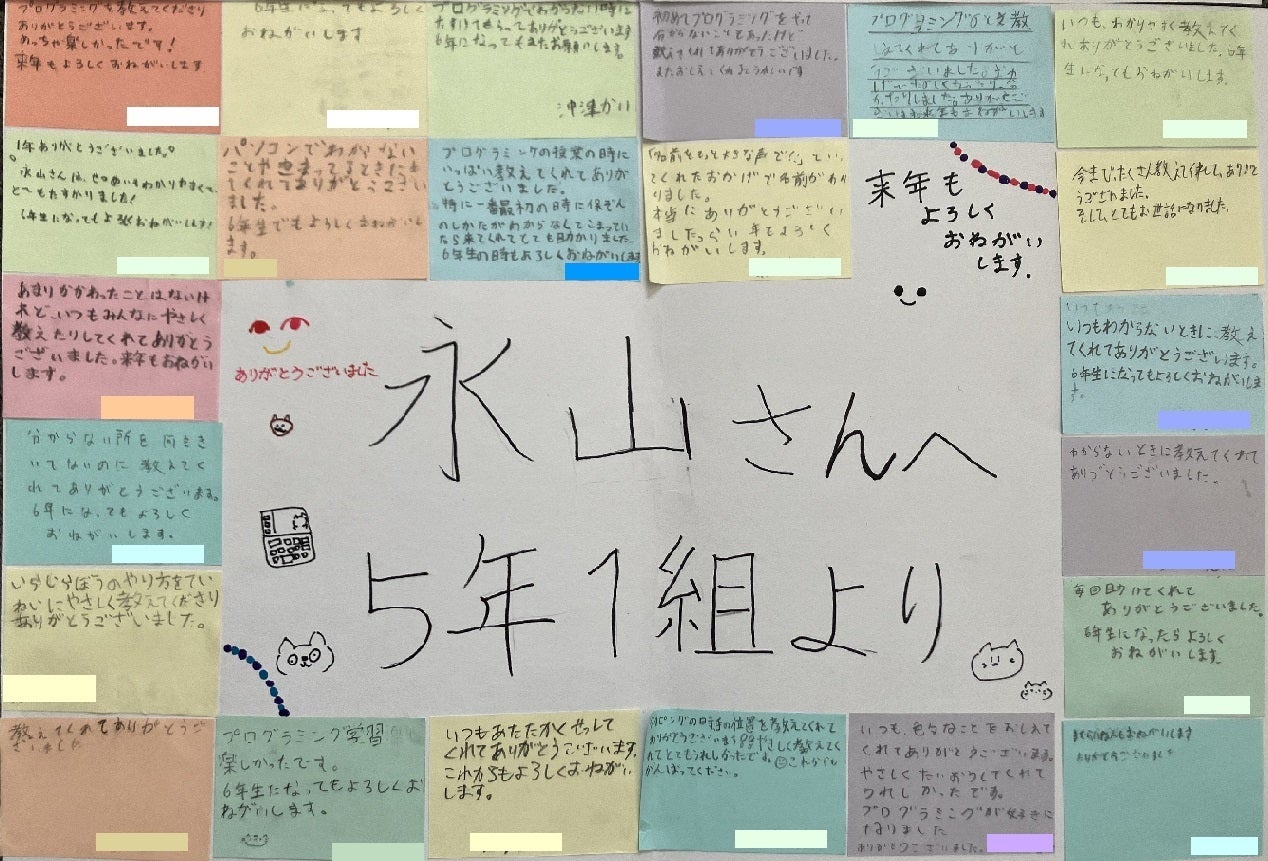 プログラミングを教えてくださり
ありがとうございます。
めっちゃ楽しかったです!
来年もよろしくおねがいします
6年生になってもよろしく
おねがいします
プログラミングでわからない時に
たすけてもらってありがとうございます
6年になってもまたお願いします。
初めてプログラミングをやって
分からないこともあったけど
教えてくれてありがとうございました。
プログラミングのことを教
えてくれてありがと
うございました。
いつも、わかりやすく教えてく
れありがとうございました。6年
生になってもおねがいします。
1年ありがとうございました。
永山さんは、せつめいもわかりやすく、
とてもたすかりました!
6年生になってもよろしくおねがいします!
パソコンでわからない
ことや
てくれてありがとうござい
ました。
6年生でもよろしくおねがいし
ます。
プログラミングの授業の時に
いっぱい教えてくれてありが
とうございました。
特に一番最初の時に保ぞん
のしかたがわからなくてこまってい
たら来てくれてとても助かりました。
6年生の時もよろしくおねがいします
「名前をもっと大きな声で」てい
てくれたおかげで名前がわか
りました。
本当にありがとうござい
ました
おねがいします。
来年も
よろしく
おねがい
します.
今まで、たくさん教えてくれて、ありがと
うございました。
そして、とてもお世話になりました。
あまりかかわったことはないけ
れど、いつもみんなにやさしく
教えたりしてくれてありがとう
ございました。来年もおねがい
します。
ありがとうございました
永山さんへ
いつもわからないときに教え
てくれてありがとうございます。
6年生になってもよろしくおねがいしま
す。
分からない所を
いてないのに教えてく
れてありがとうございます。
6年になってもよろしく
おねがいします。
わからないときに教えてくれて
ありがとうございました。
5年1組より
いらいらぼうのやり方をてい
ねいにやさしく教えてくださり
ありがとうございました。
毎回助けてくれて
ありがとうございました。
6年生になったらよろしく
おねがいします
教えてくれてありがとうご
ざいました
プログラミング学習
楽しかったです。
6年生になってもよろしくお
ねがいします。
いつもあたたかくせっして
くれてありがとうございます。
これからもよろしくおねがい
します。
タイピングの日に手の位置を教えてくれて
ありがとうございます
がんばってください。
いつも、色々なことをおしえて
くれてありがとうございます。
やさしくたいおうしてくれて
うれしかったです。
プログラミングが好きに
なりました
ありがとうございました。
おねがいします
ありがとうございました